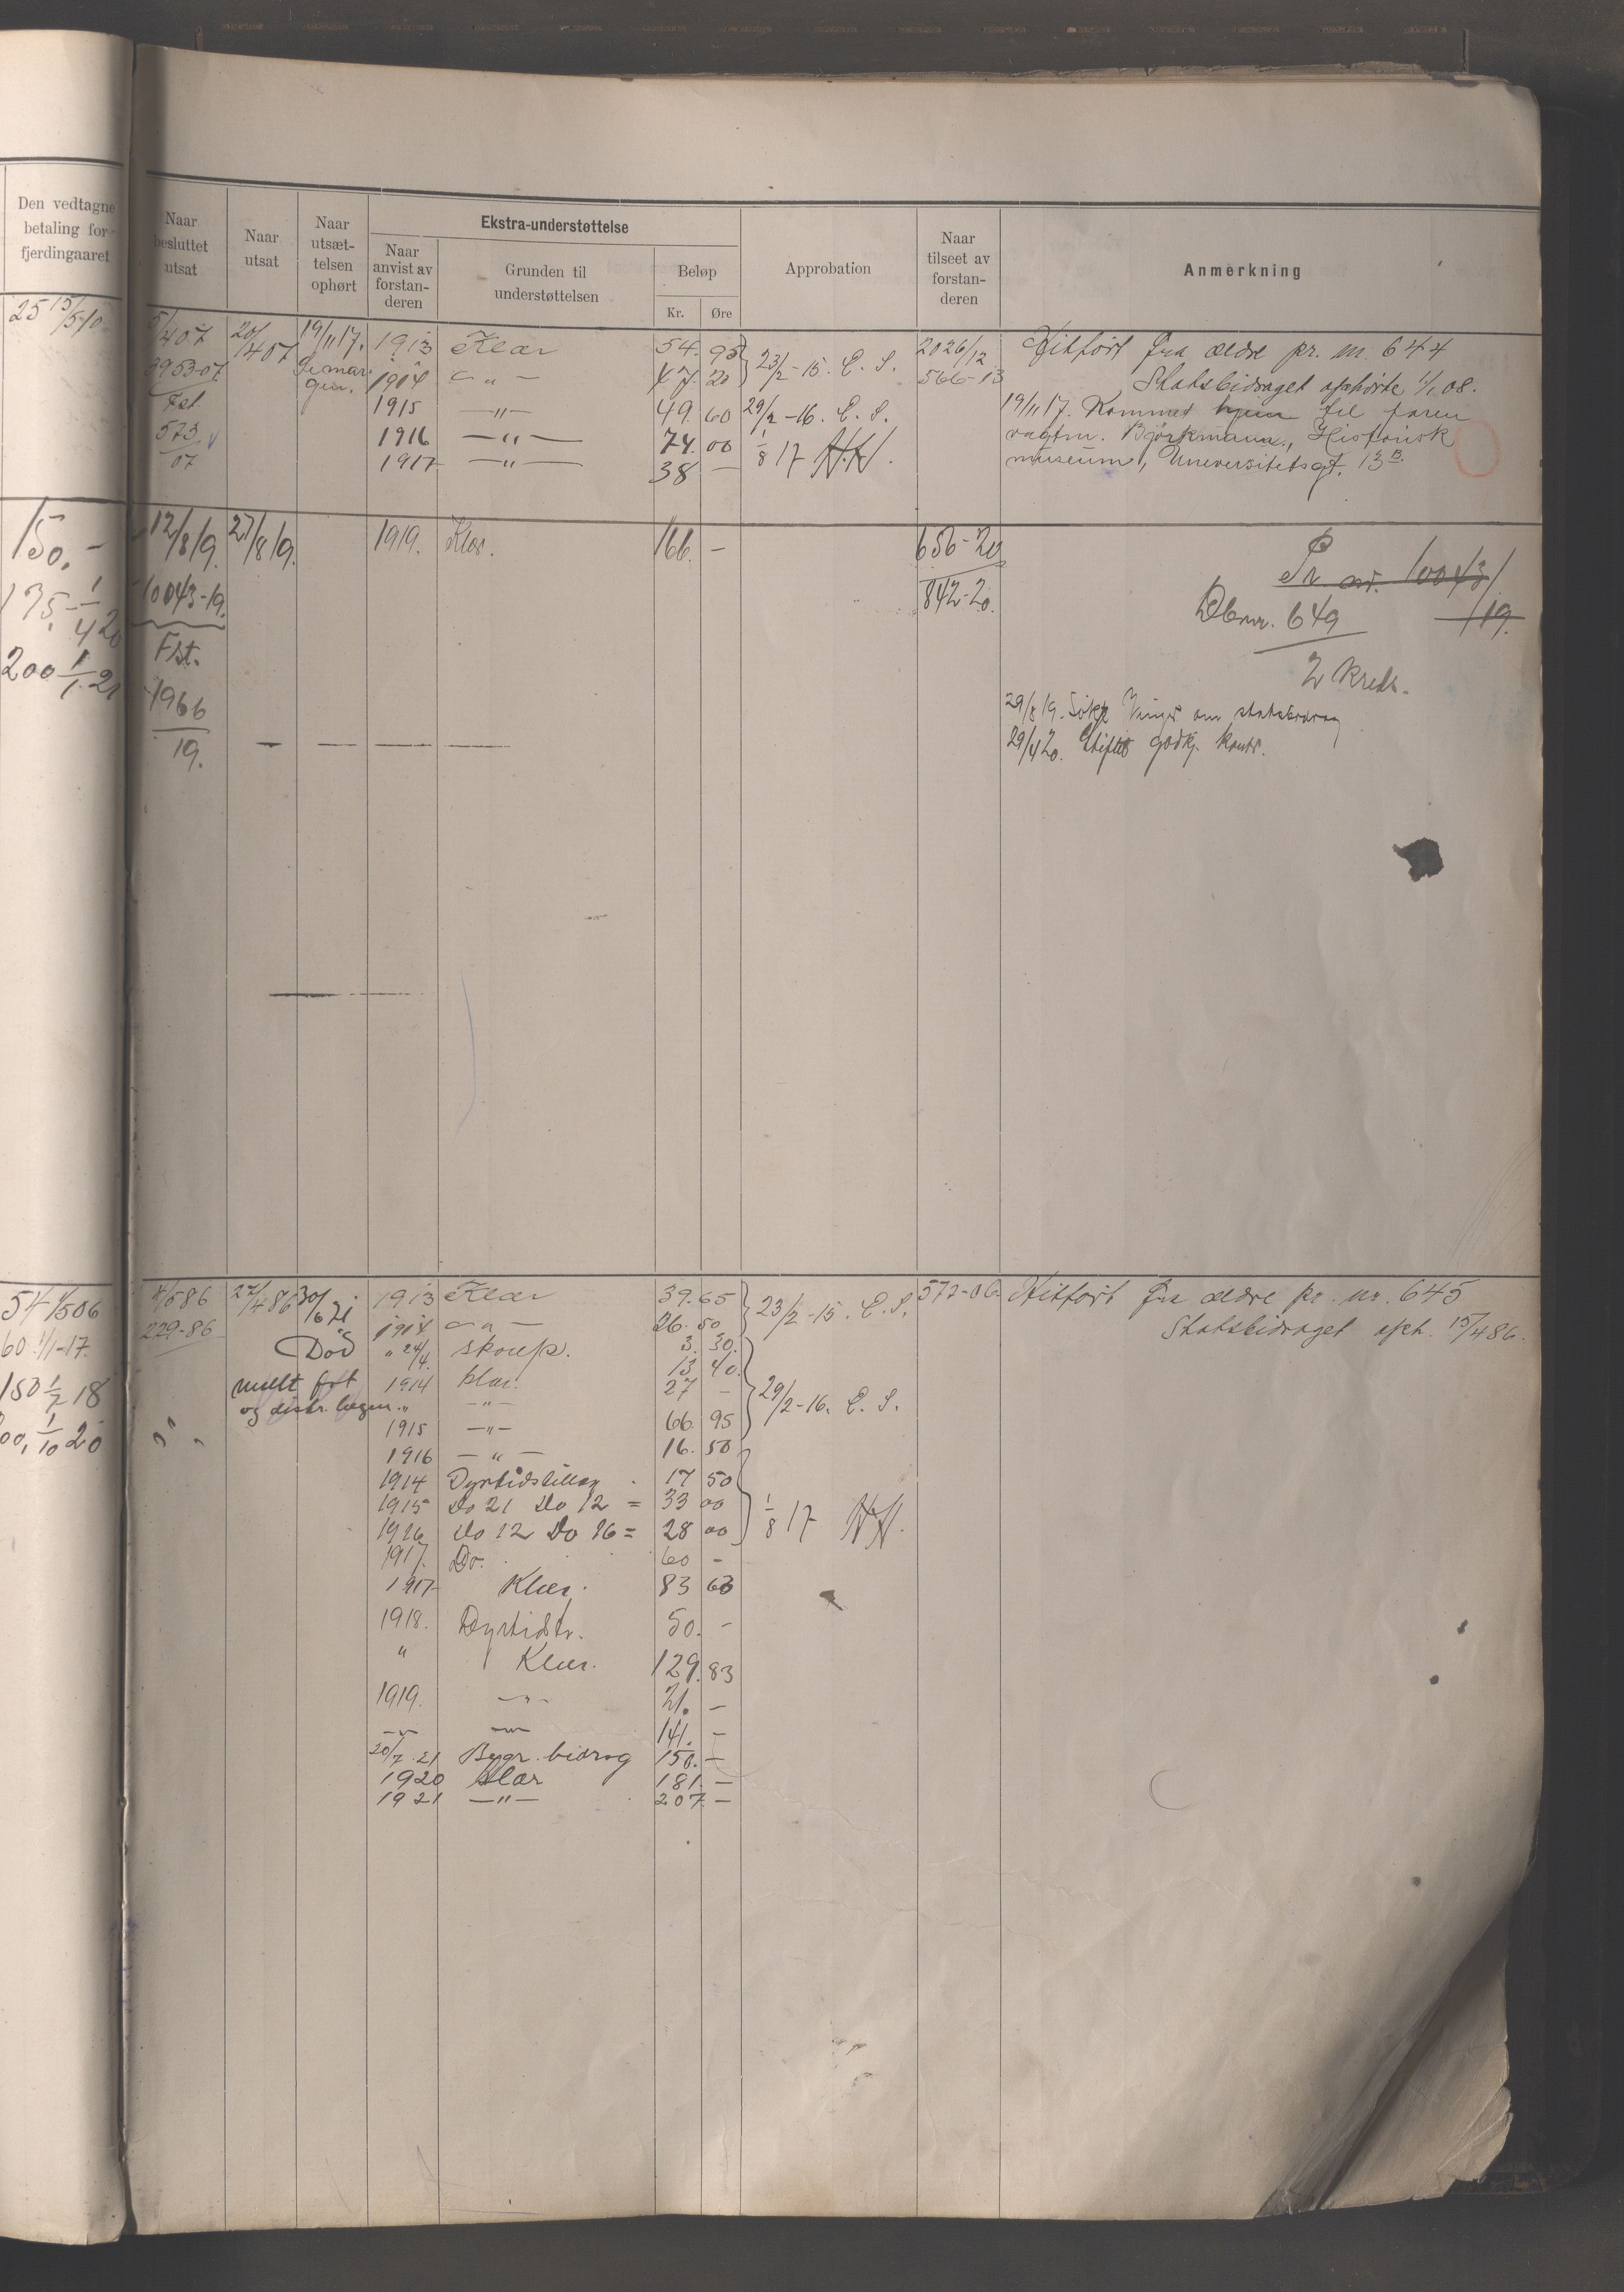 Den vedtagne
betaling for
fjerdingaaret
Naar
besluttet
utsat
Naar
utsat
Naar
utsæt-
telsen
ophørt
Ekstra-understøttelse
Naar
anvist av
forstan-
deren
Grunden til
understøttelsen
Beløp
Kr.
Øre
Approbation
Naar
tilseet av
forstan-
deren
Anmerkning
25 15/5 10
5/4 07 20/4 07 19/11 17. 1913 Klær 54. 95 23/2-15. E. S. 2026/12 Hitført fra ældre pr. nr. 644
3953-07 1914 — " — 47. 20 566-13 Statsbidraget ophørte 1/1 08.
Fst. 1915 — " — 49. 60 29/2-16. E. S. 19/11 17. Kommet hjem til faren
573 1916 — " — 74. 00 1/8 17 vagtm. Björkmann, Historisk
07 1917 — " — 38 — museum, Universitetsgt. 13 B.
150.- 12/8 19. 27/8 19. 1919. Klær. 166. - 656-20 Pr. nr. 10043/19.
175.- 1/4 20 10043-19. 842-20. Obnr. 649
200 1/1 21 Fst. 2 Kreds.
1966 29/8 19. Søkt om statsbidrag
19. 29/4 20. Stiftet godkj. kontr.
54 1/5 06 4/5 86 27/4 86 30/6 21 1913 Klær 39. 65 23/2-15. E. S. 572-06 Hitført fra ældre pr. nr. 645
60 1/1-17. 229-86 1914 — " — 26. 50 Statsbidraget oph. 15/4 86.
Død " 24/4. skoup. 3. 30.
150 1/7 18 melt fst 1914 klær. 13 40
og distr. lægen. " — " — 27 -
29/2-16. E. S.
1/10 20 1915 — " — 66. 95
1916 — " — 16. 50
1914 Dyrtidstillæg 17 50
1915 Do 21 Do 12 = 33 00
1916 Do 12 Do 16 = 28 00 1/8 17
1917. Do. 60 -
1917 Klær. 83 63
1918. Dyrtidst. 50. -
" Klær. 129. 83
1919. — " — 21. -
— " — — " — 141. -
20/7 21 Begr. bidrag 150. -
1920 klær 181. —
1921 — " — 207. —